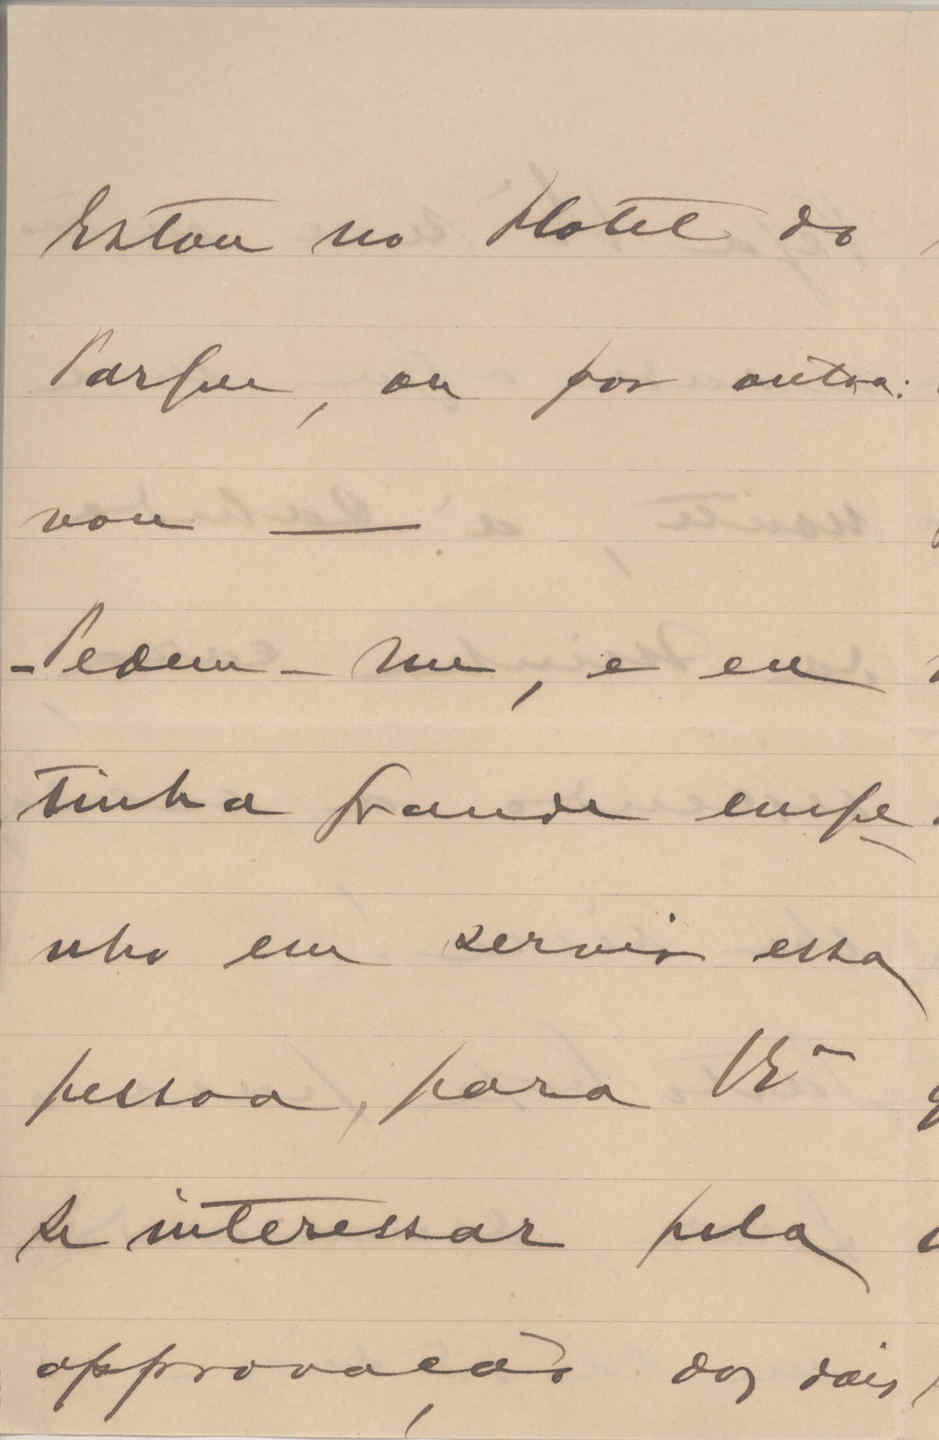 Estou no Hotel do
Parque, ou por outra:
vou —
- Pedem-me, e eu
tinha grande empe-
nho em servir essa
pessoa, para VEª
se interessar pela
approvação dos dois